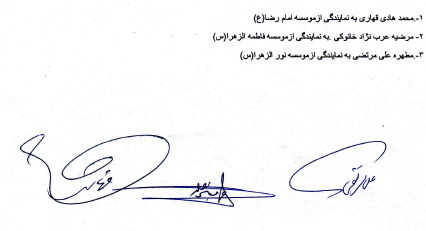 ۱-.محمد هادی قهاری به نمایندگی ازموسسه امام رضا(ع)
۲- مرضیه عرب نژاد خانوکی .به نمایندگی ازموسسه فاطمه الزهرا(س)
۳-.مطهره علی مرتضی به نمایندگی ازموسسه نور الزهرا(س)